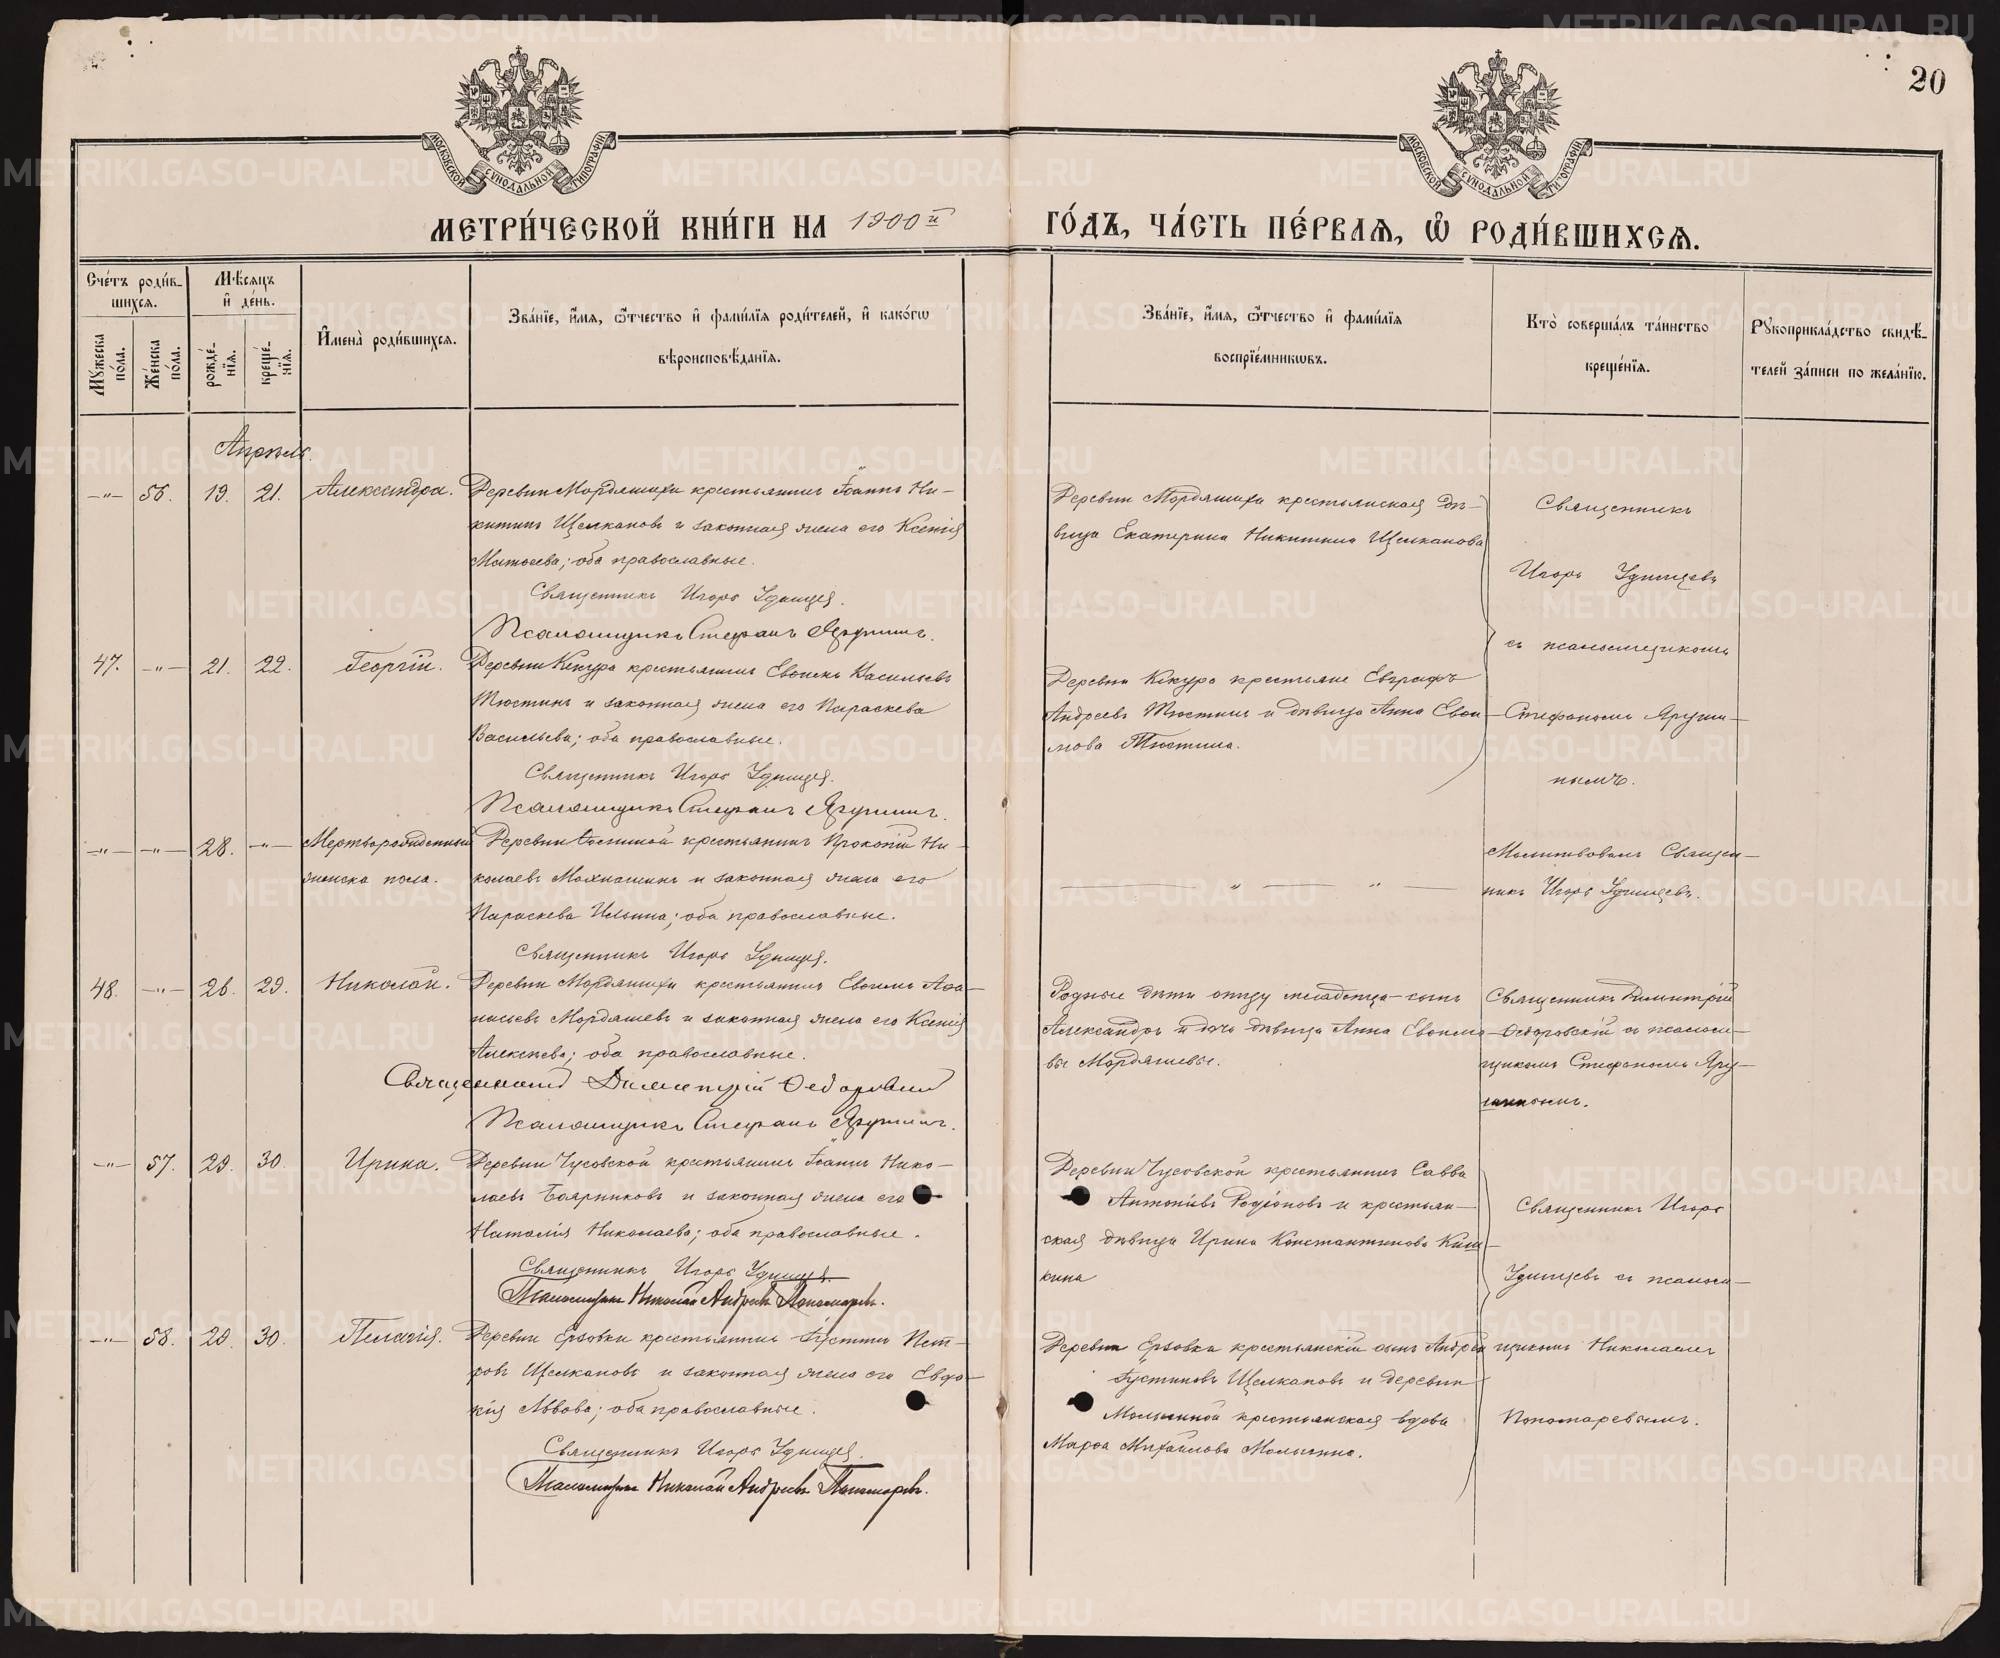 20
МОСКОВСКОЙ СѴНОДАЛЬНОЙ ТИПОГРАФІИ
МОСКОВСКОЙ СѴНОДАЛЬНОЙ ТИПОГРАФІИ
МЕТРИ́ЧЕСКОЙ КНИ́ГИ НА 1900й ГО́ДЪ, ЧА́СТЬ ПЕ́РВАѦ, Ѽ РОДИ́ВШИХСѦ.
Сче́тъ роди́вшихсѧ.
Мѣ́сѧцъ и҆ де́нь.
И҆мена̀ роди́вшихсѧ.
Зва́нїе, и҆́мѧ, ѻ҆́тчество и҆ фами́лїѧ роди́телей, и҆ како́гѡ
вѣроисповѣ́данїѧ.
Зва́нїе, и҆́мѧ, ѻ҆́тчество и҆ фами́лїѧ
воспрїе́мникѡвъ.
Кто̀ соверша́лъ та́инство
креще́нїѧ.
Рꙋкоприкла́дство свидѣ́-
телей за́писи по жела́нїю.
Мꙋ́жеска по́ла.
Же́нска по́ла.
рожде́нїѧ.
креще́нїѧ.
Апрѣль.
—"— 56. 19. 21. Александра. Деревни Мордяшихи крестьянинъ Іоаннъ Ни-
китинъ Щелкановъ и законная жена его Ксенія
Матѳеева; оба православные.
Священникъ Игорь Удинцев.
Псаломщикъ Стефанъ Ярушинъ.
Деревни Мордяшихи крестьянская дѣ-
вица Екатерина Никитина Щелканова
Священникъ
Игорь Удинцевъ
съ псаломщикомъ
Стефаномъ Яруши-
нымъ.
47. —"— 21. 22. Георгій. Деревни Кекура крестьянинъ Евѳимъ Васильевъ
Тюстинъ и законная жена его Параскева
Васильева; оба православные.
Священникъ Игорь Удинцев.
Псаломщикъ Стефанъ Ярушинъ.
Деревни Кекура крестьяне Евграфъ
Андреевъ Тюстинъ и дѣвица Анна Евѳи-
мова Тюстина.
—"— —"— 28. —"— Мертворожденный Деревни крестьянинъ Прокопій Ни-
женска пола. колаевъ и законная жена его
Параскева Ильина; оба православные.
Священникъ Игорь Удинцев.
— " — " —
Молитвовалъ Священ-
никъ Игорь Удинцевъ.
48. —"— 26. 29. Николай. Деревни Мордяшихи крестьянинъ Евѳимъ Аѳа-
насьевъ Мордяшевъ и законная жена его Ксенія
Алексѣева; оба православные.
Священникъ Димитрій Ѳедоровскій
Псаломщикъ Стефанъ Ярушинъ.
Родные дѣти отцу младенца — сынъ
Александръ и дочь дѣвица Анна Евѳимо-
вы Мордяшевы.
Священникъ Димитрій
Ѳедоровскій съ псаломщикомъ
Стефаномъ Яру-
шинымъ.
—"— 57. 29. 30. Ирина. Деревни Чусовской крестьянинъ Іоаннъ Нико-
лаевъ Бояринковъ и законная жена его
Наталія Николаева; оба православные.
Священникъ Игорь Удинцев.
Псаломщикъ Николай Андреевъ Пономаревъ.
Деревни Чусовской крестьянинъ Савва
Антоніевъ Родіоновъ и крестьян-
ская дѣвица Ирина Константинова Каш-
кина
Священникъ Игорь
Удинцевъ съ псалом-
щикомъ Николаемъ
Пономаревымъ.
—"— 58. 29. 30. Пелагія. Деревни Ерзовки крестьянинъ Іустинъ Пет-
ровъ Щелкановъ и законная жена его Евдо-
кія Львова; оба православные.
Священникъ Игорь Удинцев.
Псаломщикъ Николай Андреевъ Пономаревъ.
Деревни Ерзовки крестьянскій сынъ Андрей
Іустиновъ Щелкановъ и деревни
Мальгиной крестьянская вдова
Марѳа Михайлова Мальгина.
METRIKI.GASO-URAL.RU